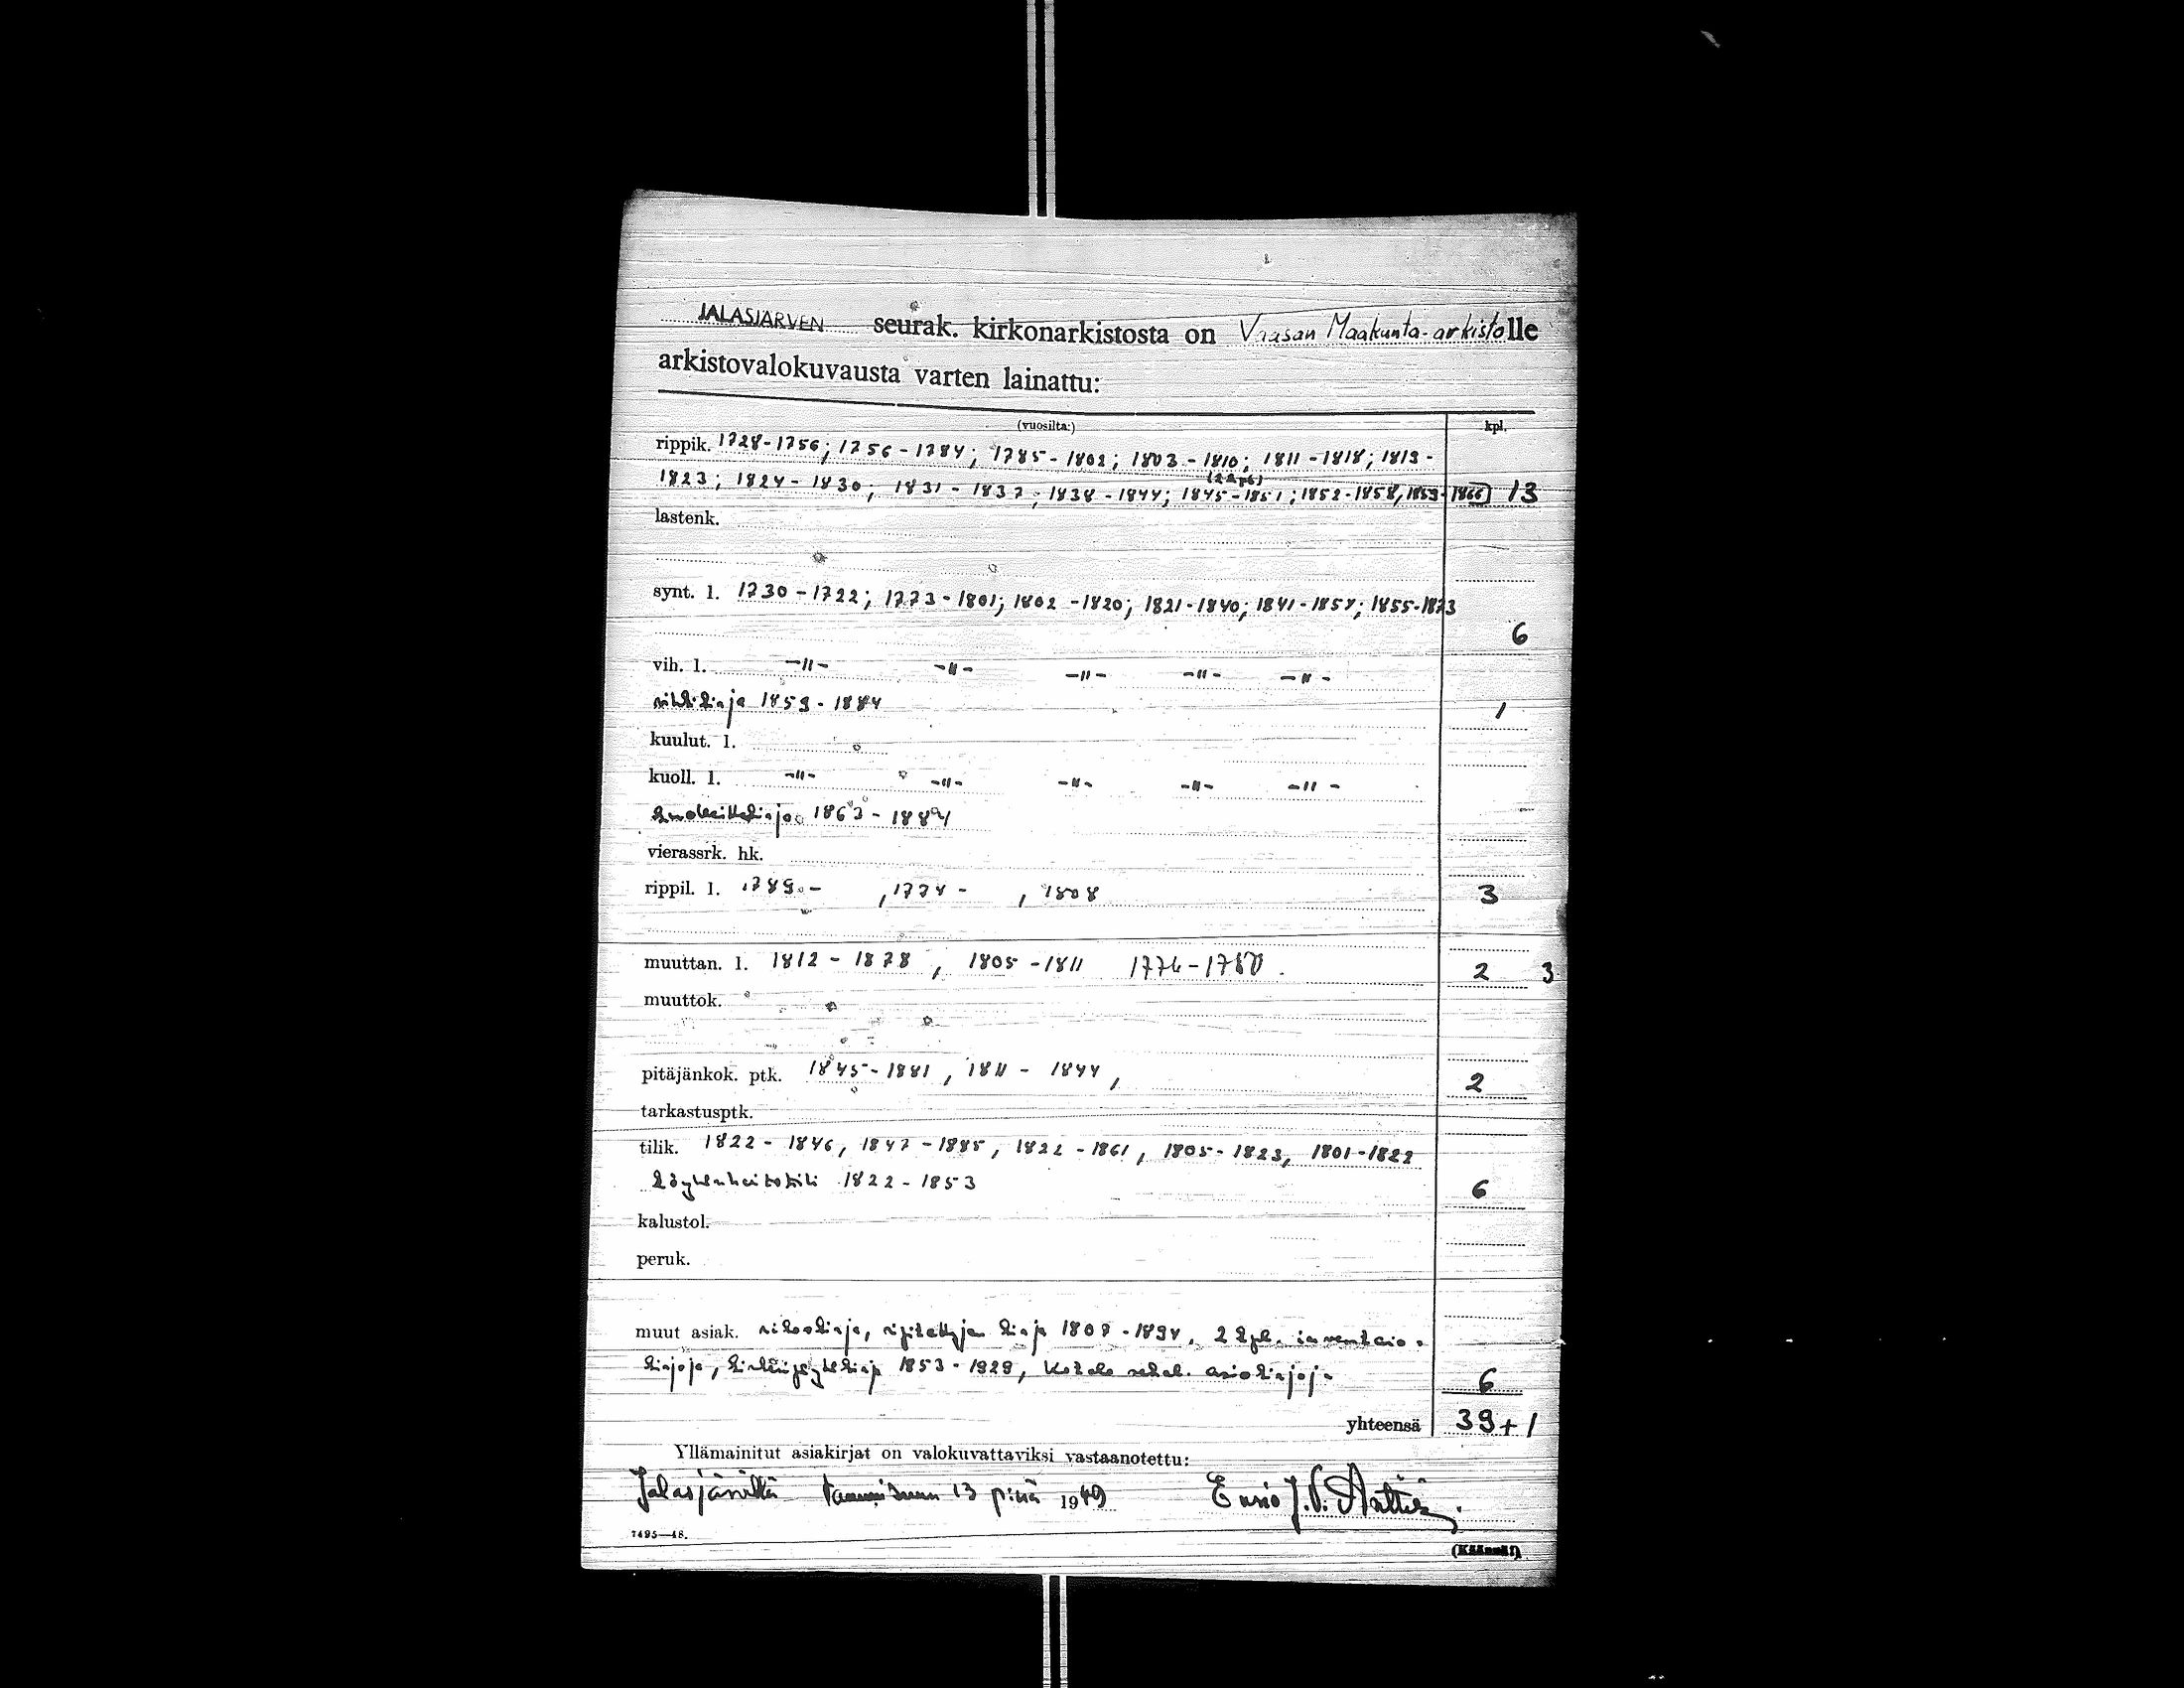 JALASJÄRVEN seurak. kirkonarkistosta on Vaasan Maakunta-arkistolle
arkistovalokuvausta varten lainattu:
(vuosilta:) kpl.
rippik. 1728-1756; 1756-1784; 1785-1802; 1803-1810; 1811-1818; 1813-
(2 kpl)
1823; 1824-1830; 1831-1837; 1838-1844; 1845-1851; 1852-1858, 1859-1866) 13
lastenk.
synt. l. 1730-1722; 1773-1801; 1802-1820; 1821-1840; 1841-1854; 1855-1873
6
vih. l. -"- -"- -"- -"- -"-
vihkikirja 1859-1884 1
kuulut. l.
kuoll. l. -"- -"- -"- -"- -"-
1863-1884
vierassrk. hk.
rippil. l. 1789- , 1774- , 1808 3
muuttan. l. 1812-1878, 1805-1811 1776-1780. 2 3
muuttok.
pitäjänkok. ptk. 1845-1881, 1811-1844, 2
tarkastusptk.
tilik. 1822-1846, 1847-1885, 1822-1861, 1805-1823, 1801-1822
köyhäinhoitotili 1822-1853 6
kalustol.
peruk.
muut asiak. sikookirja, ripitettyjen kirja 1808-1894, 2 kpl. inventaario-
kirjoja, 1853-1929, Kotelo sekal. asiakirjoja 6
yhteensä 39+1
Yllämainitut asiakirjat on valokuvattaviksi vastaanotettu:
Jalasjärvellä tammikuun 13 p:nä 1949 Ensio J.
7495—48.
(Käännä!)